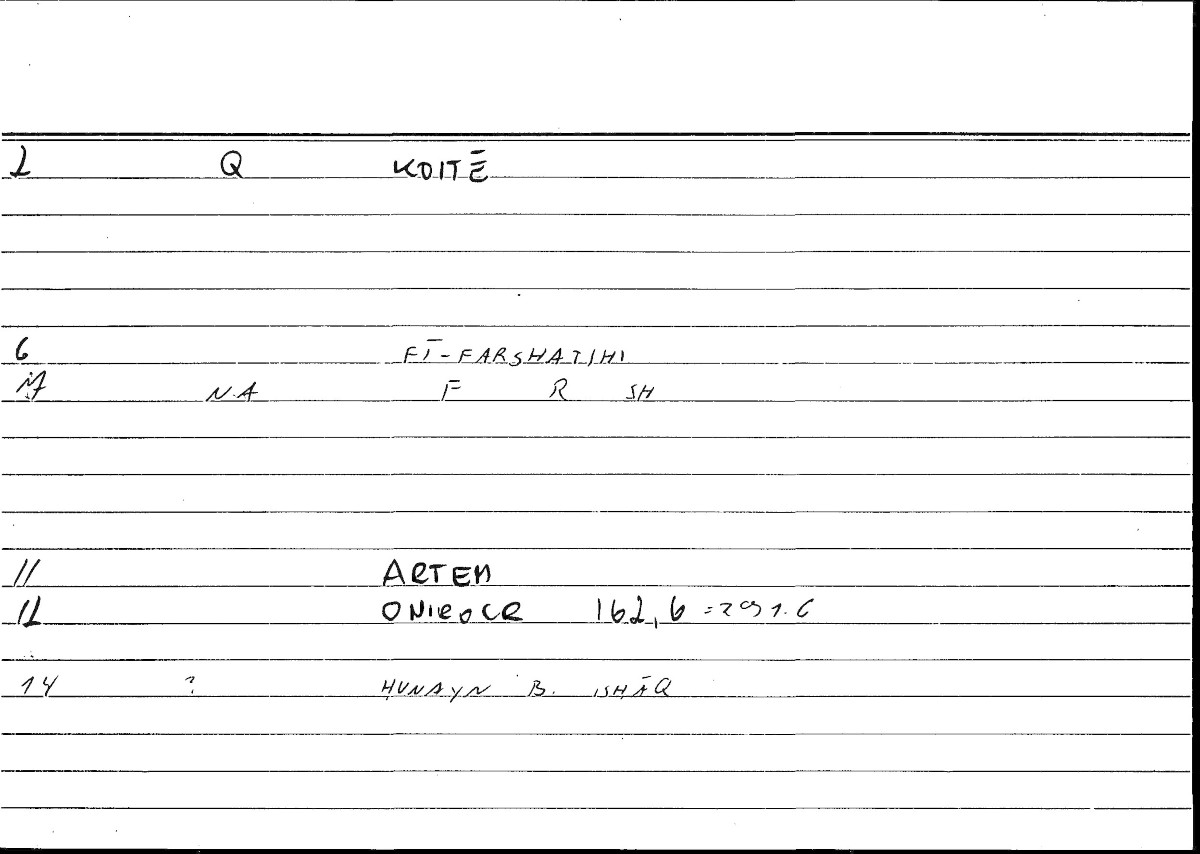 2 Q KOITĒ
6 FĪ-FARSHATIHI
N.A F R SH
11 ARTEM
12 ONIROCR 162,6 = 291.6
14 ? ḤUNAYN B. ISHĀQ